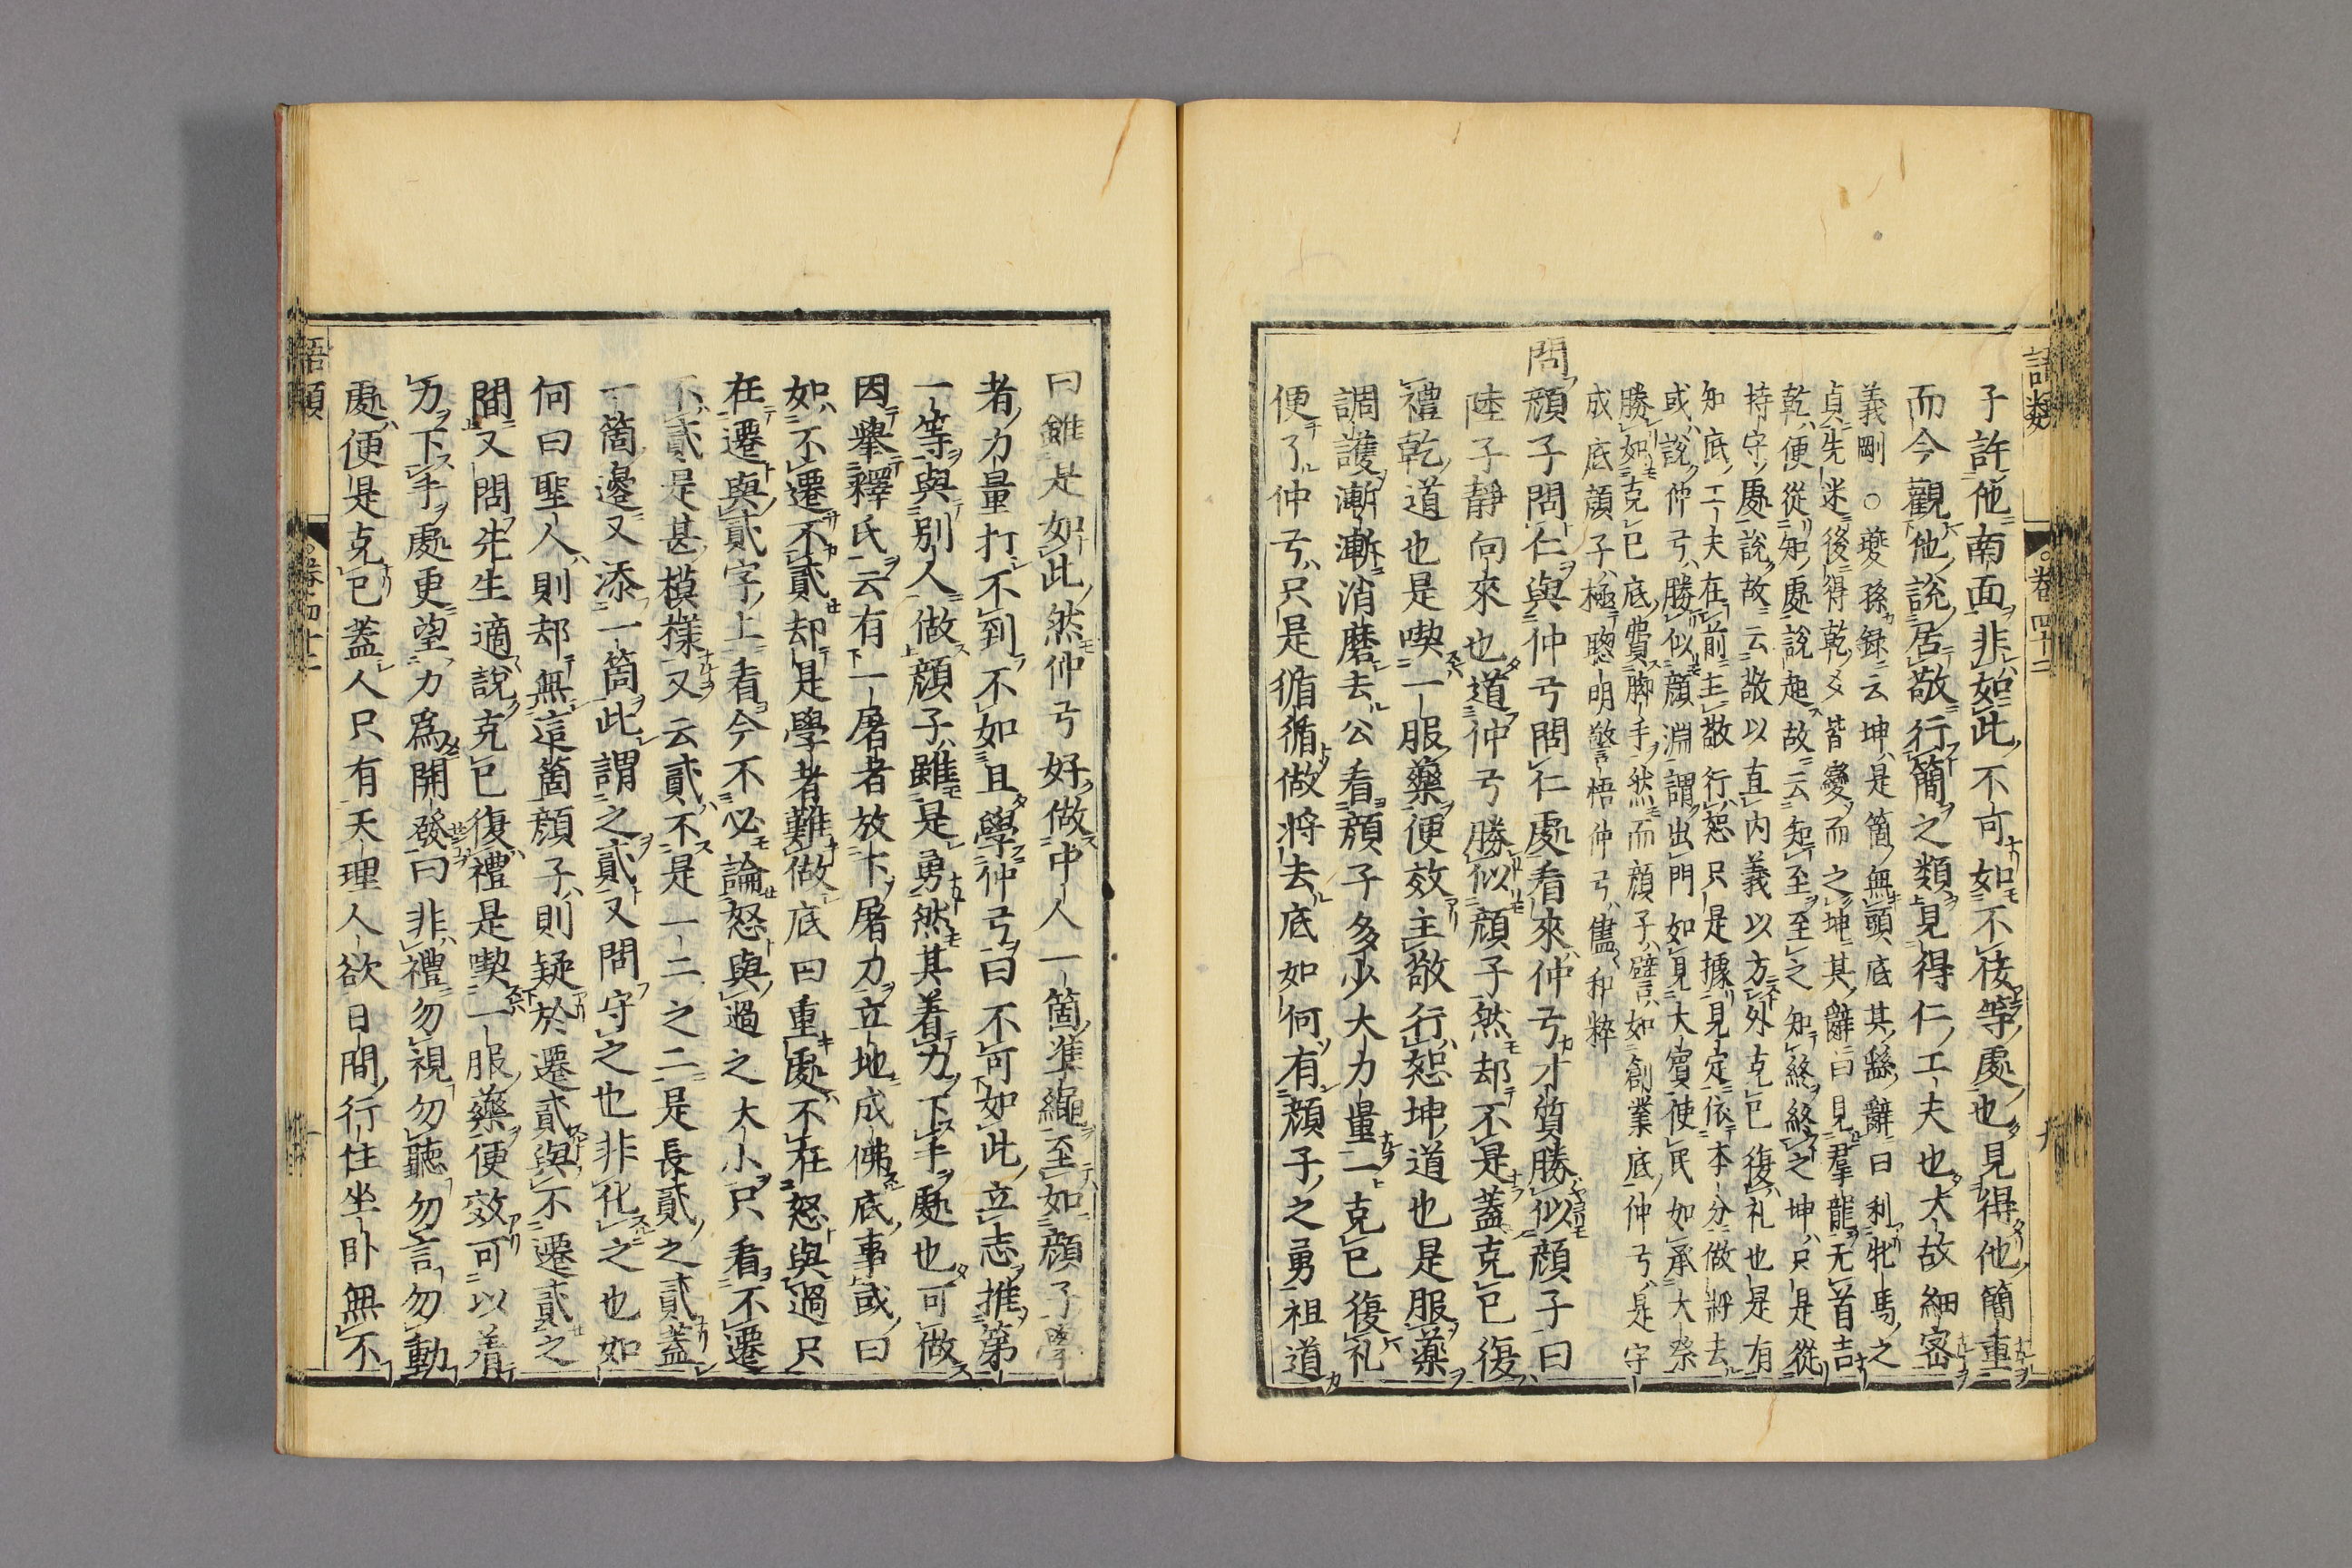 語類
卷四十二
九
子許他南面非如此不可如不佞等處也見得他簡重
而今觀他說居敬行簡之類見得仁工夫也大故細密
義剛○夔孫録云坤是箇無頭底其繇辭曰利牝馬之
貞先迷後得乾爻皆變而之坤其辭曰見羣龍无首吉
乾便從知處說起故云知至至之知終終之坤只是從
持守處說故云敬以直内義以方外克己復礼也是有
知底工夫在前主敬行恕只是據見定依本分做將去
或說仲弓勝似顔淵謂出門如見大賓使民如承大祭
勝如克己底費脚手然而顔子譬如創業底仲弓是守
成底顔子極聰明警悟仲弓儘和粹
問顔子問仁與仲弓問仁處看來仲弓才質勝似顔子曰
陸子靜向來也道仲弓勝似顔子然却不是蓋克己復
禮乾道也是喫一服藥便效主敬行恕坤道也是服藥
調護漸漸消磨去公看顔子多少大力量一克己復礼
便了仲弓只是循循做將去底如何有顔子之勇祖道
曰雖是如此然仲弓好做中人一箇準繩至如顔子學
者力量打不到不如且學仲弓曰不可如此立志推第
一等與别人做顔子雖是勇然其着力下手處也可做
因舉釋氏云有一屠者放下屠刀立地成佛底事或曰
如不遷不貳却是學者難做底曰重處不在怒與過只
在遷與貳字上看今不必論怒與過之大小只看不遷
不貳是甚模様又云貳不是一二之二是長貳之貳蓋
一箇邊又添一箇此謂之貳又問守之也非化之也如
何曰聖人則却無這箇顔子則疑於遷貳與不遷貳之
間又問先生適說克己復禮是喫一服藥便效可以着
力下手處更望力爲開發曰非禮勿視勿聽勿言勿動
處便是克己蓋人只有天理人欲日間行住坐卧無不
語類
卷四十二